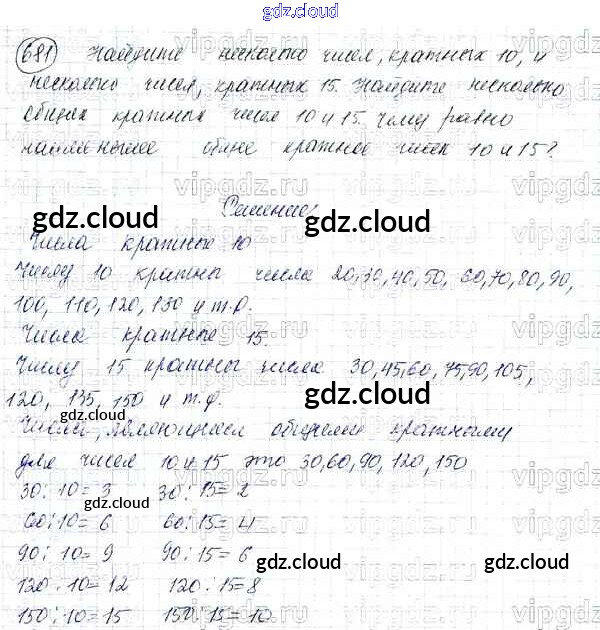 gdz.cloud
681 Найдите несколько чисел, кратных 10, и
несколько чисел, кратных 15. Найдите несколько
общих кратных чисел 10 и 15. Чему равно
наименьшее общее кратное чисел 10 и 15?
Решение:
Числа кратные 10
Числу 10 кратны числа 20,30,40,50, 60,70,80,90,
100, 110, 120, 130 и т.д.
Числа кратные 15.
Числу 15 кратны числа 30,45,60, 75,90,105,
120, 135, 150 и т.д.
Числа, являющиеся общими кратными
для чисел 10 и 15 это 30,60,90,120,150
30:10=3 30:15=2
60:10=6 60:15=4
90:10=9 90:15=6
120:10=12 120:15=8
150:10=15 150:15=10
gdz.cloud
gdz.cloud
gdz.cloud
gdz.cloud
gdz.cloud
gdz.cloud
gdz.cloud